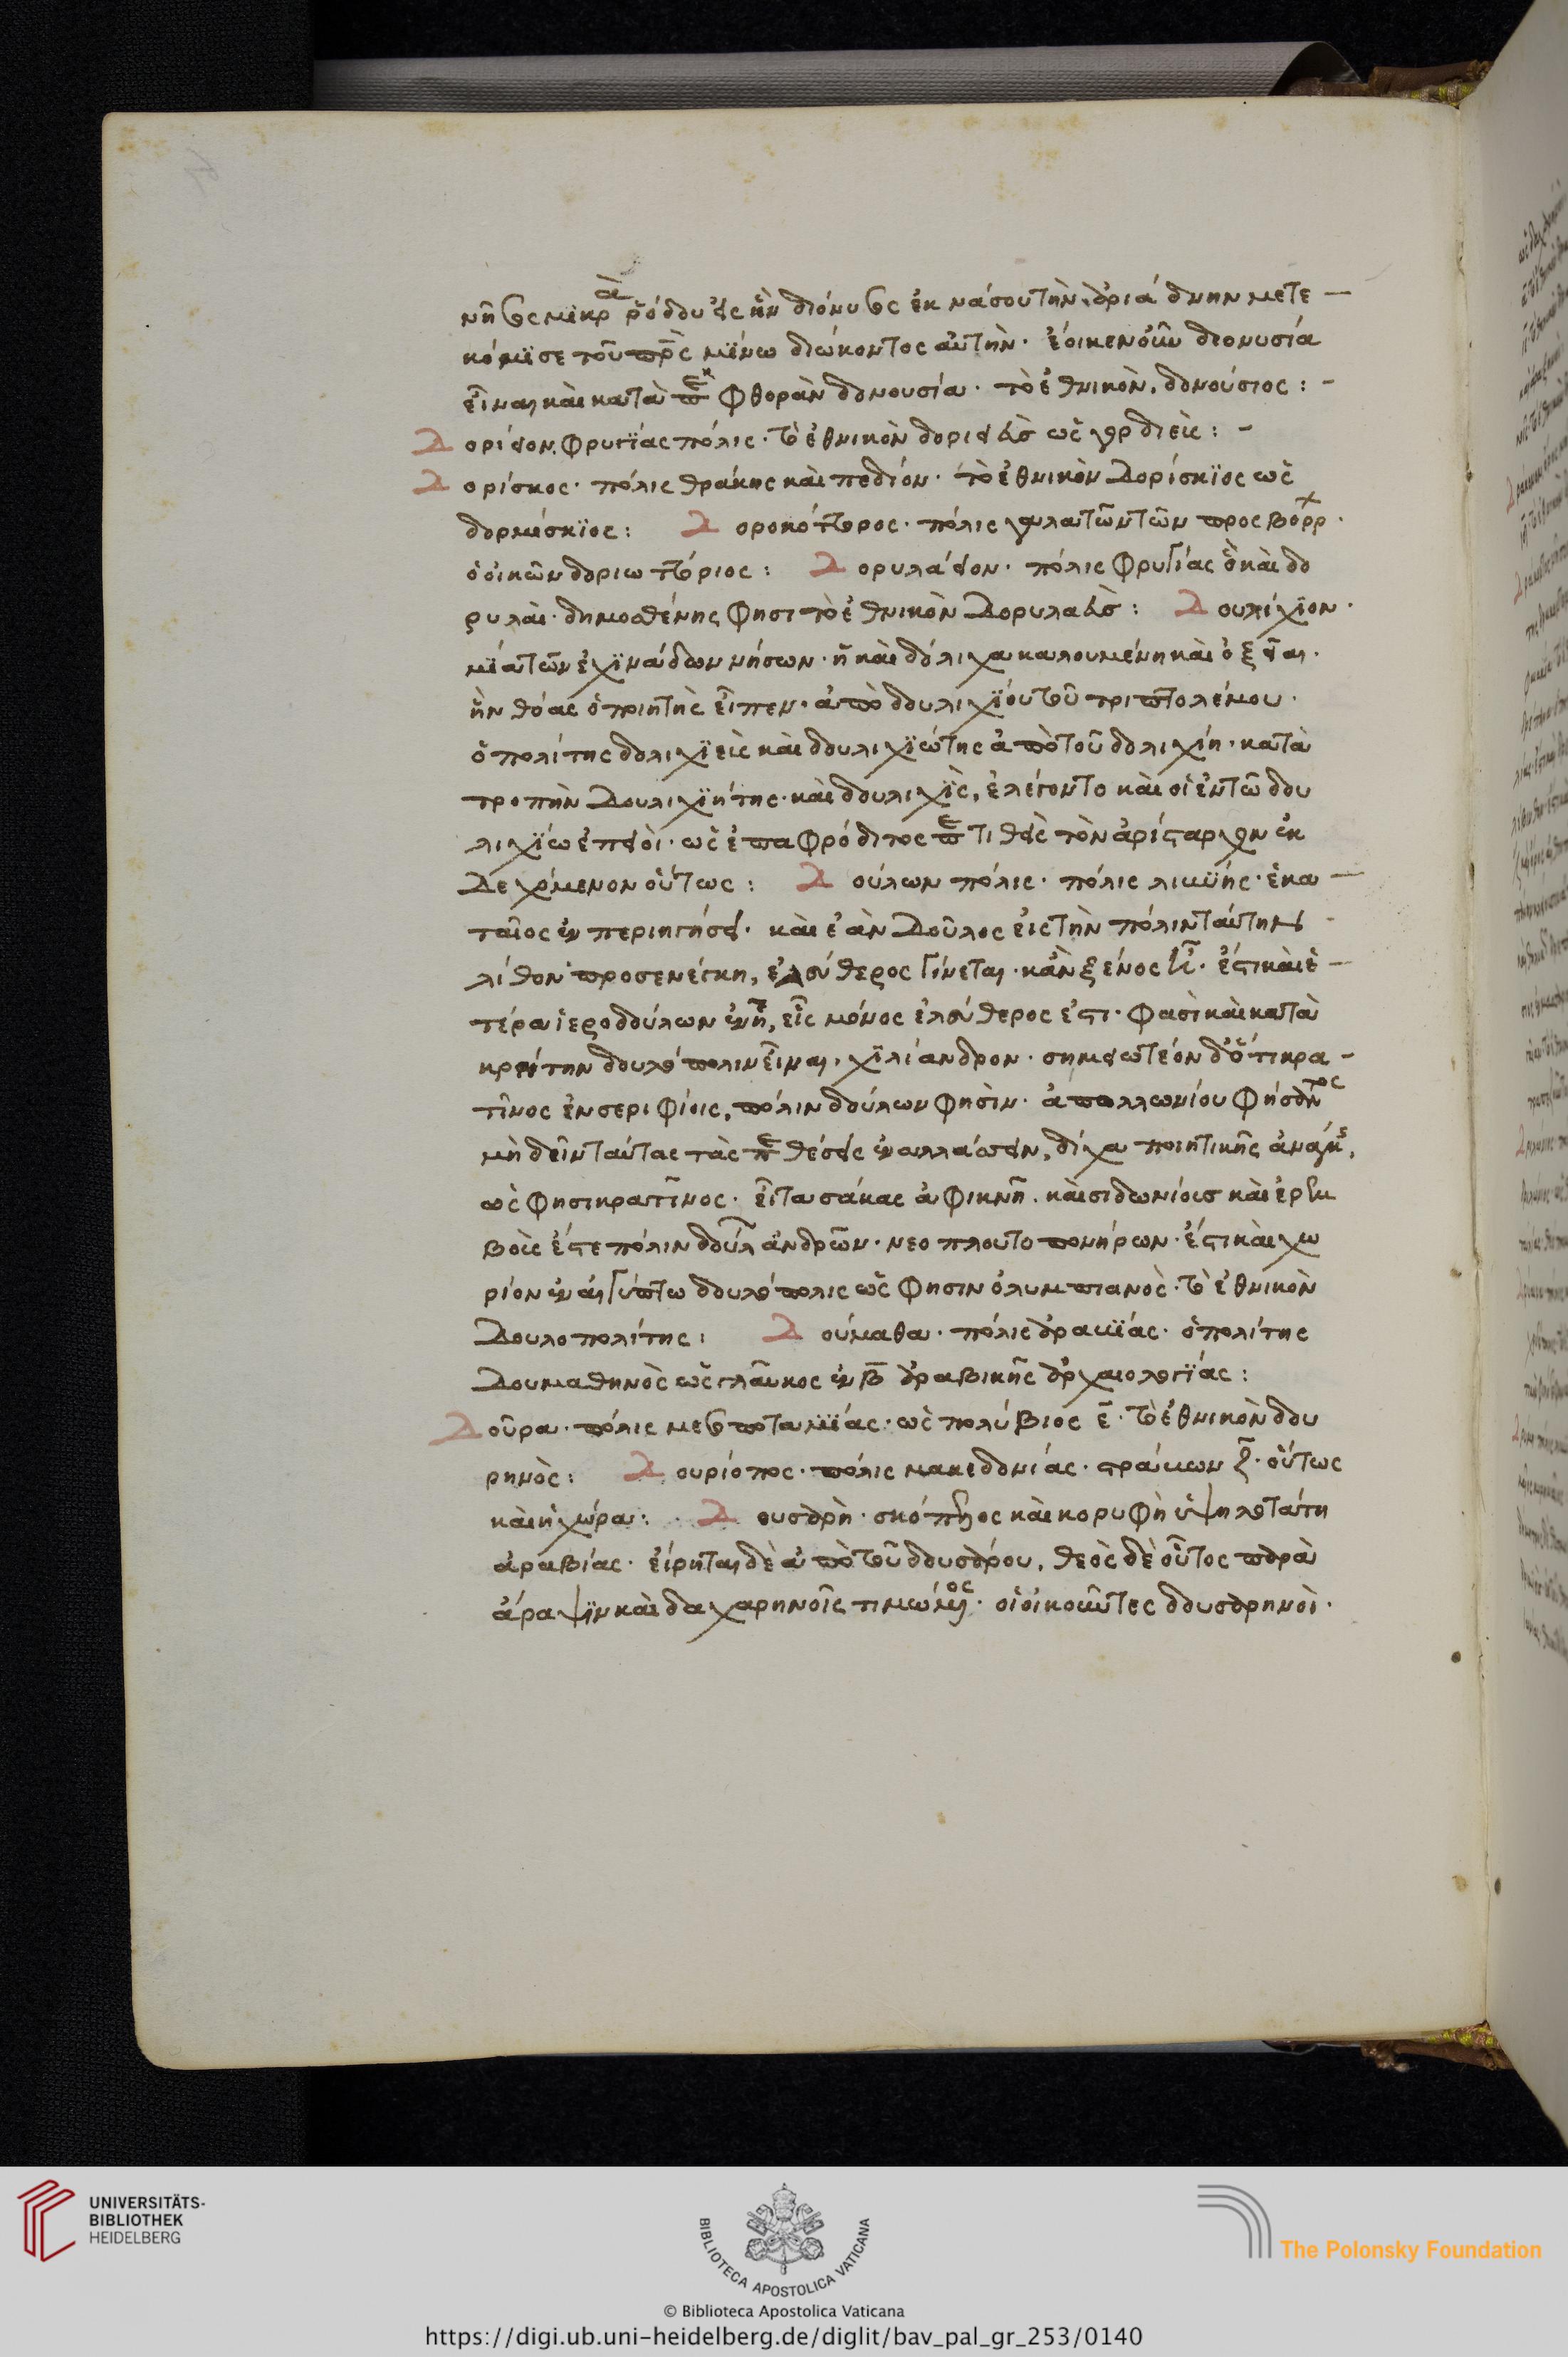 νῆσος μικρὰ ῥόδου εἰς ἣν διόνυσος ἐκ νάξου τὴν ἀριάδνην μετε
κόμϊσε τοῦ πρς μϊνω διώκοντος αὐτὴν· ἔοικεν οὖν διονυσία
εἶναι καὶ κατὰ φθορὰν δονουσία· τὸ ἐθνικὸν, δονούσιος:-
Δορίειον, φρυγίας πόλις· τὸ ἐθνικὸν δοριεὺς ὡς
Δορίσκος· πόλις θράκης καὶ πεδίον· τὸ ἐθνικὸν Δορίσκϊος ὡς
δορμίσκϊος: Δοροκόττορος· πόλις γαλατῶν τῶν προς βορρ·
ὁ οἰκῶν δοριωττόριος: Δορυλάειον· πόλις φρυγίας ὃ καὶ δο
ρυλάι· δημοσθένης φησι τὸ ἐθνικὸν Δορυλαεὺς: Δουλίχϊον·
μϊα τῶν ἐχϊνάδων νήσων· ἣ καὶ δόλιχα καλουμένη καὶ ὀξεῖαι·
ἣν θόας ὁ ποιητὴς εἶπεν· ἀπὸ δουλιχϊου τοῦ τριπτολέμου·
ὁ πολίτης δολιχϊεὶς καὶ δουλιχϊώτης ἀπὸ τοῦ δολιχίη· κατὰ
τροπὴν Δουλιχϊήτης· καὶ δουλιχϊὶς, ἐλέγοντο καὶ οἱ ἐν τῶ δου
λιχϊω ἐπειοὶ· ὡς ἐπαφρόδιτος τὸν ἀρίσταρχον ἐκ
Δεχόμενον οὕτως: Δούλων πόλις· πόλις λιβύης· ἑκα
ταῖος ἐν περιηγήσει· καὶ ἐὰν Δοῦλος εἰς τὴν πόλιν ταύτην
λίθον προσενέγκη, ἐλεύθερος γίνεται· κἂν ξένος ἔστι καὶ ἑ
τέρα ἱεροδούλων ἐν ῆ, εἷς μόνος ἐλεύθερος ἐστι· φασὶ καὶ κατὰ
κρήτην δουλόπολιν εἶναι, χϊλίανδρον· σημειωτέον δ' ὅτι κρα
τῖνος ἐν σεριφίοις, πόλιν δούλων φησὶν· ἀπολλωνίου φήσαντος
μὴ δεῖν ταύτας τὰς θέσεις ἐναλλάσσειν, δίχα ποιητικῆς ἀνάγκης,
ὡς φησι κρατῖνος· εἶτα σάκας ἀφικνῆ· καὶ σιδωνίους καὶ ἐρεμ
βοὶς ἔστε πόλιν δούλ ἀνδρῶν· νεοπλουτοπονήρων· ἔστι καὶ χω
ρίον ἐν αἰγύπτω δουλόπολις ὡς φησιν ὀλυμπιανὸς· τὸ ἐθνικὸν
Δουλοπολίτης: Δούμαθα· πόλις ἀραβϊας· ὁ πολίτης
Δουμαθηνὸς ὡς γλαῦκος ἐν β ἀραβικῆς ἀρχαιολογϊας:
Δοῦρα· πόλις μεσοποταμϊας· ὡς πολύβιος ε· τὸ ἐθνικὸν δου
ρηνὸς: Δουρίοπος· πόλις μακεδονίας· στράβων ζ· οὕτως
καὶ ἡ χώρα: Δουσαρὴ· σκόπελος καὶ κορυφὴ ὑψηλοτάτη
ἀραβίας· εἴρηται δὲ ἀπὸ τοῦ δουσάρου, θεὸς δὲ οὗτος παρὰ
ἄραψϊν καὶ δαχαρηνοῖς τιμώμενος· οἱ οἰκοῦντες δουσαρηνοὶ·
UNIVERSITÄTS-
BIBLIOTHEK
HEIDELBERG
BIBLIOTECA APOSTOLICA VATICANA
The Polonsky Foundation
© Biblioteca Apostolica Vaticana
https://digi.ub.uni-heidelberg.de/diglit/bav_pal_gr_253/0140